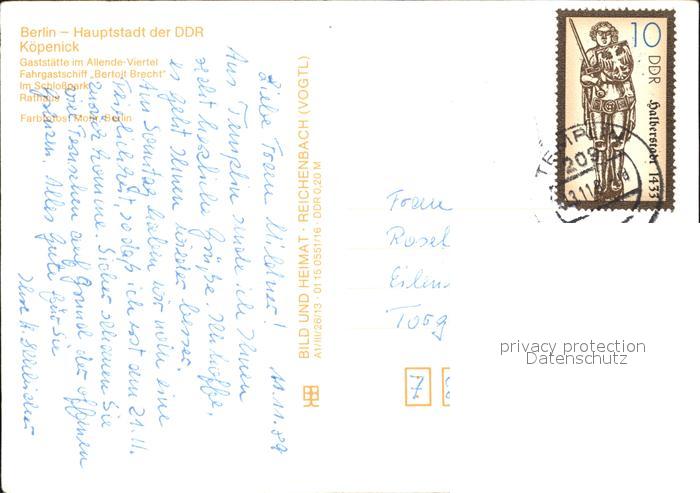 Berlin – Hauptstadt der DDR
Köpenick
Gaststätte im Allende-Viertel
Fahrgastschiff „Bertolt Brecht“
Im Schloßpark
Rathaus
Farbfotos: Mohr, Berlin
11.11.89
Liebe Frau Mildner!
Aus Templin sende ich Ihnen
recht herzliche Grüße. Ich hoffe,
es geht Ihnen wieder besser.
Am Sonntag haben wir noch eine
so daß ich erst am 21.11.
zurückkomme. Sicher schauen Sie
viel Fernsehen auf Grund der offenen
Grenzen. Alles Gute für Sie
Ihre
BILD UND HEIMAT · REICHENBACH (VOGTL)
A1/III/26/13 · 01 15 0551/16 · DDR 0,20 M
10
DDR
Halberstadt 1433
TEMPLIN
209
Frau
Rosel
Eilen
Torg
7
privacy protection
Datenschutz